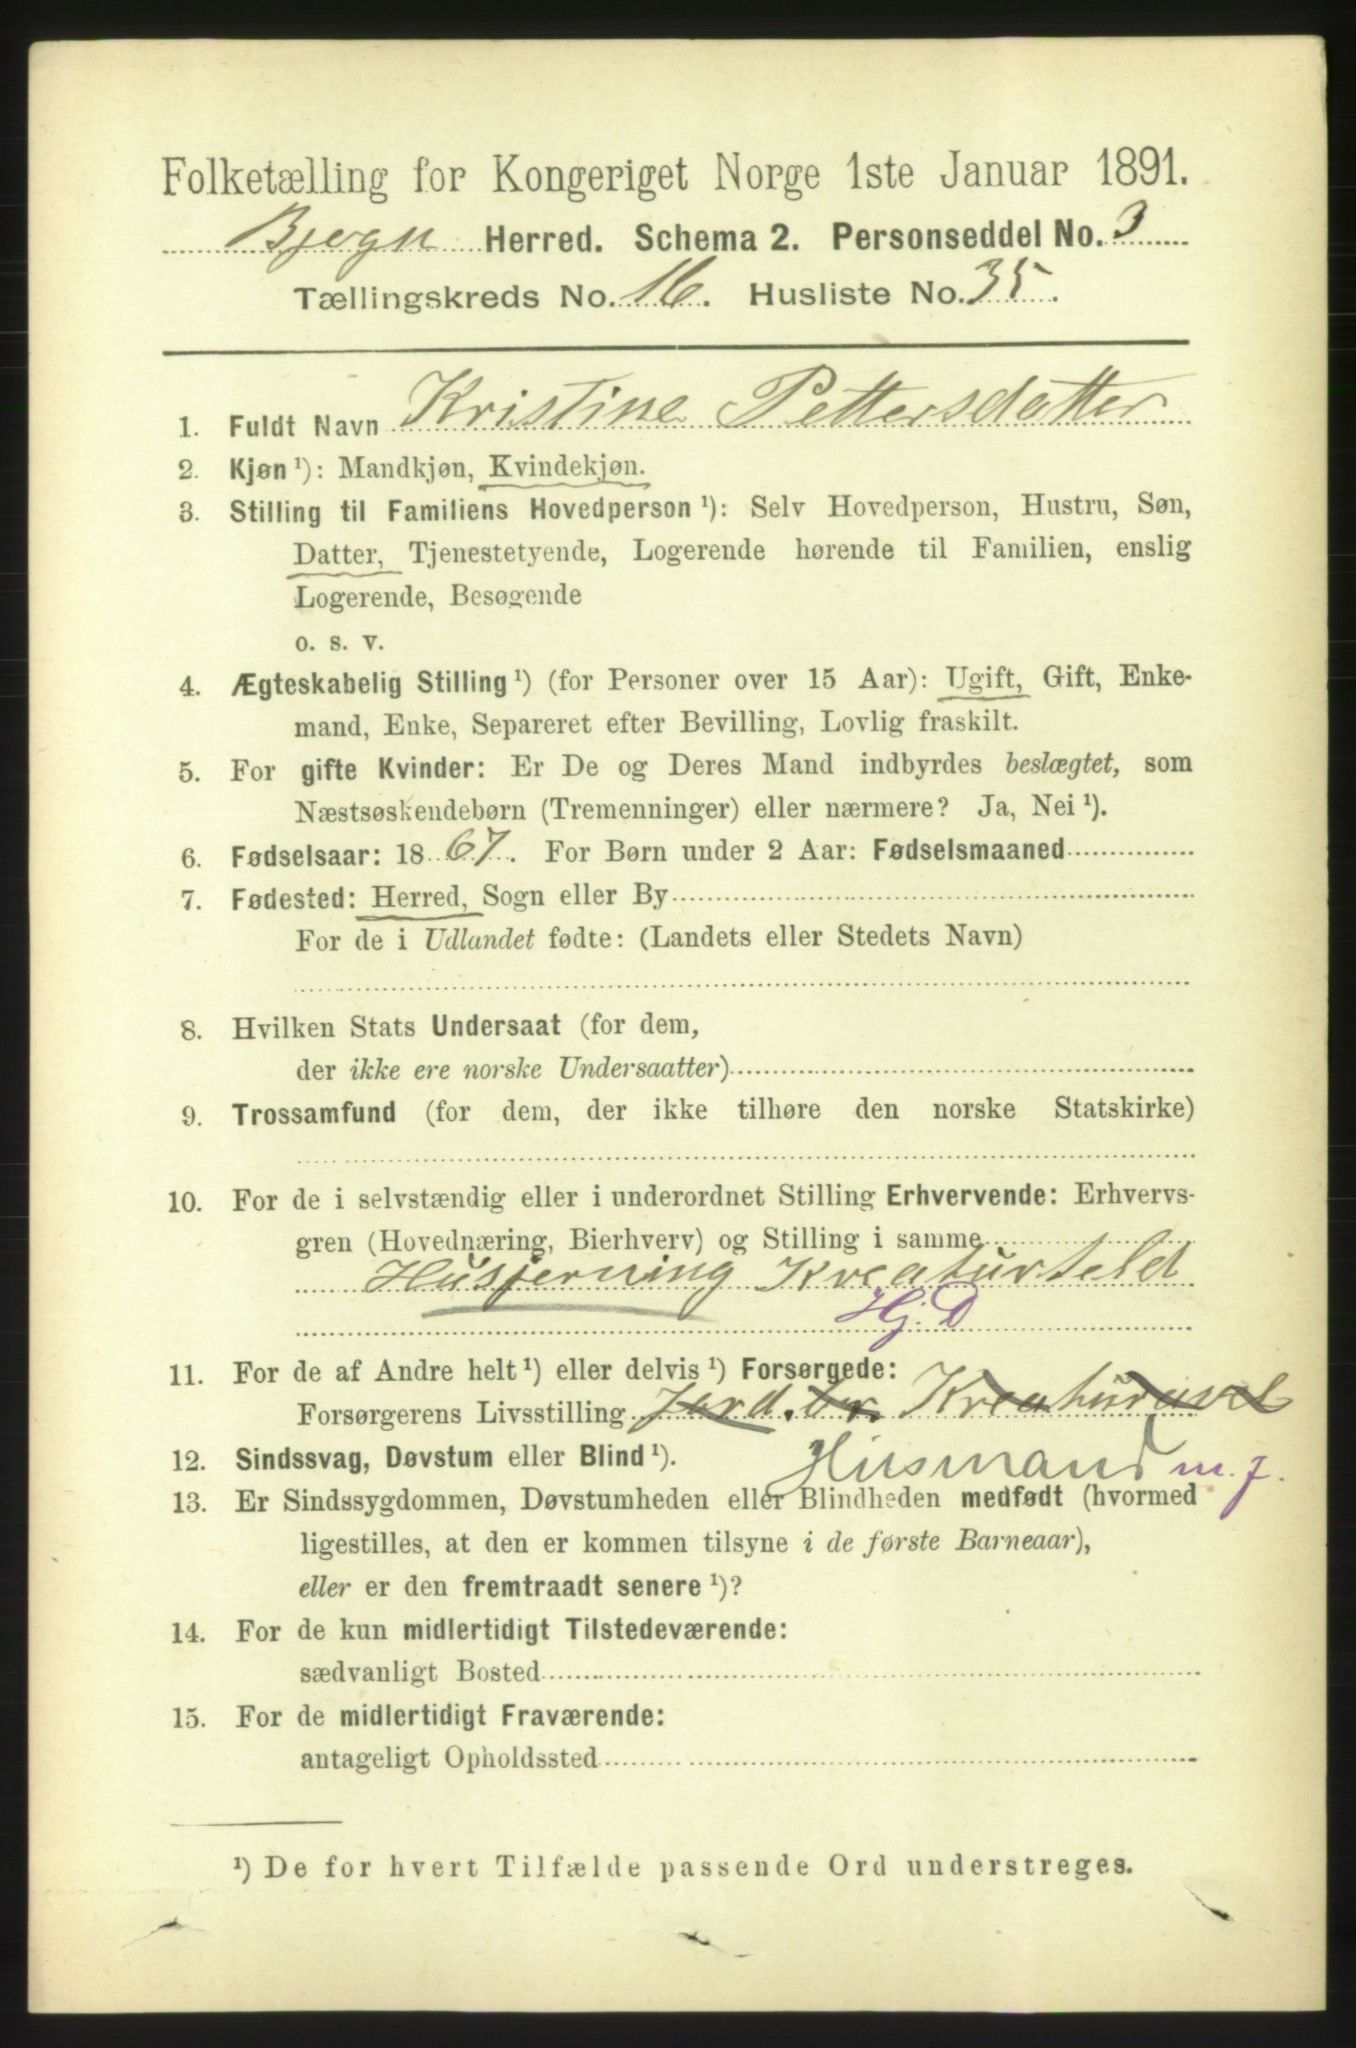 Folketælling for Kongeriget Norge 1ste Januar 1891.
Bjugn Herred. Schema 2. Personseddel No. 3
Tællingskreds No. 16. Husliste No. 35.
1. Fuldt Navn Kristine Pettersdatter
2. Kjøn ¹): Mandkjøn, Kvindekjøn.
3. Stilling til Familiens Hovedperson ¹): Selv Hovedperson, Hustru, Søn,
Datter, Tjenestetyende, Logerende hørende til Familien, enslig
Logerende, Besøgende
o. s. v.
4. Ægteskabelig Stilling ¹) (for Personer over 15 Aar): Ugift, Gift, Enke-
mand, Enke, Separeret efter Bevilling, Lovlig fraskilt.
5. For gifte Kvinder: Er De og Deres Mand indbyrdes beslægtet, som
Næstsøskendebørn (Tremenninger) eller nærmere? Ja, Nei ¹).
6. Fødselsaar: 1867. For Børn under 2 Aar: Fødselsmaaned
7. Fødested: Herred, Sogn eller By
For de i Udlandet fødte: (Landets eller Stedets Navn)
8. Hvilken Stats Undersaat (for dem,
der ikke ere norske Undersaatter)
9. Trossamfund (for dem, der ikke tilhøre den norske Statskirke)
10. For de i selvstændig eller i underordnet Stilling Erhvervende: Erhvervs-
gren (Hovednæring, Bierhverv) og Stilling i samme
Husjerning Kreaturteld
Hj. D
11. For de af Andre helt ¹) eller delvis ¹) Forsørgede:
Forsørgerens Livsstilling Jord. br.
Husmand m. j.
12. Sindssvag, Døvstum eller Blind ¹).
13. Er Sindssygdommen, Døvstumheden eller Blindheden medfødt (hvormed
ligestilles, at den er kommen tilsyne i de første Barneaar),
eller er den fremtraadt senere ¹)?
14. For de kun midlertidigt Tilstedeværende:
sædvanligt Bosted
15. For de midlertidigt Fraværende:
antageligt Opholdssted
¹) De for hvert Tilfælde passende Ord understreges.